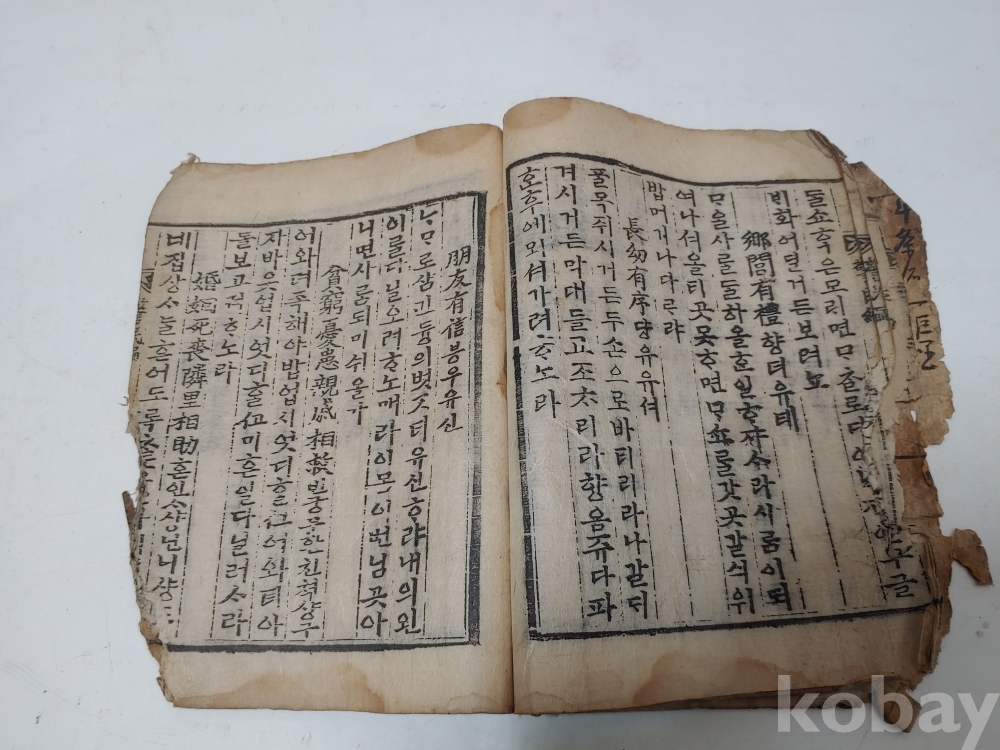 비화어딛거든보려뇨
鄕閭有禮향녀유례
ᄆᆞ올사ᄅᆞᆷ둘하올ᄒᆞᆫ일ᄒᆞ쟈ᄉᆞ라사ᄅᆞᆷ이되
여나셔올티곳못ᄒᆞ면ᄆᆞ쇼ᄅᆞᆯ갓곳갈싀워
밥머기나다ᄅᆞ랴
長幼有序댱유유셔
ᄑᆞᆯ목쥐시거든두손으로바티리라나갈ᄃᆡ
겨시거든막대들고조ᄎᆞ리라향음쥬다파
ᄒᆞᆫ후에뫼셔가려ᄒᆞ노라
朋友有信븡우유신
ᄂᆞᆷ으로삼긴듕의벗ᄀᆞ티유신ᄒᆞ랴내의왼
이ᄅᆞᆯ다닐오려ᄒᆞ노매라이몸이번님곳아
니면사ᄅᆞᆷ되미쉬올가
貧窮憂患親戚相救빈궁우환친쳑샹구
어와뎌족해야밥업시엇디ᄒᆞᆯ고어와뎌아
자바옷업시엇디ᄒᆞᆯ고머흔일다닐러ᄉᆞ라
돌보고져ᄒᆞ노라
婚姻死喪隣里相助혼인ᄉᆞ상닌니샹조
네집상ᄉᆞᄂᆞᆯ흔어도록
kobay